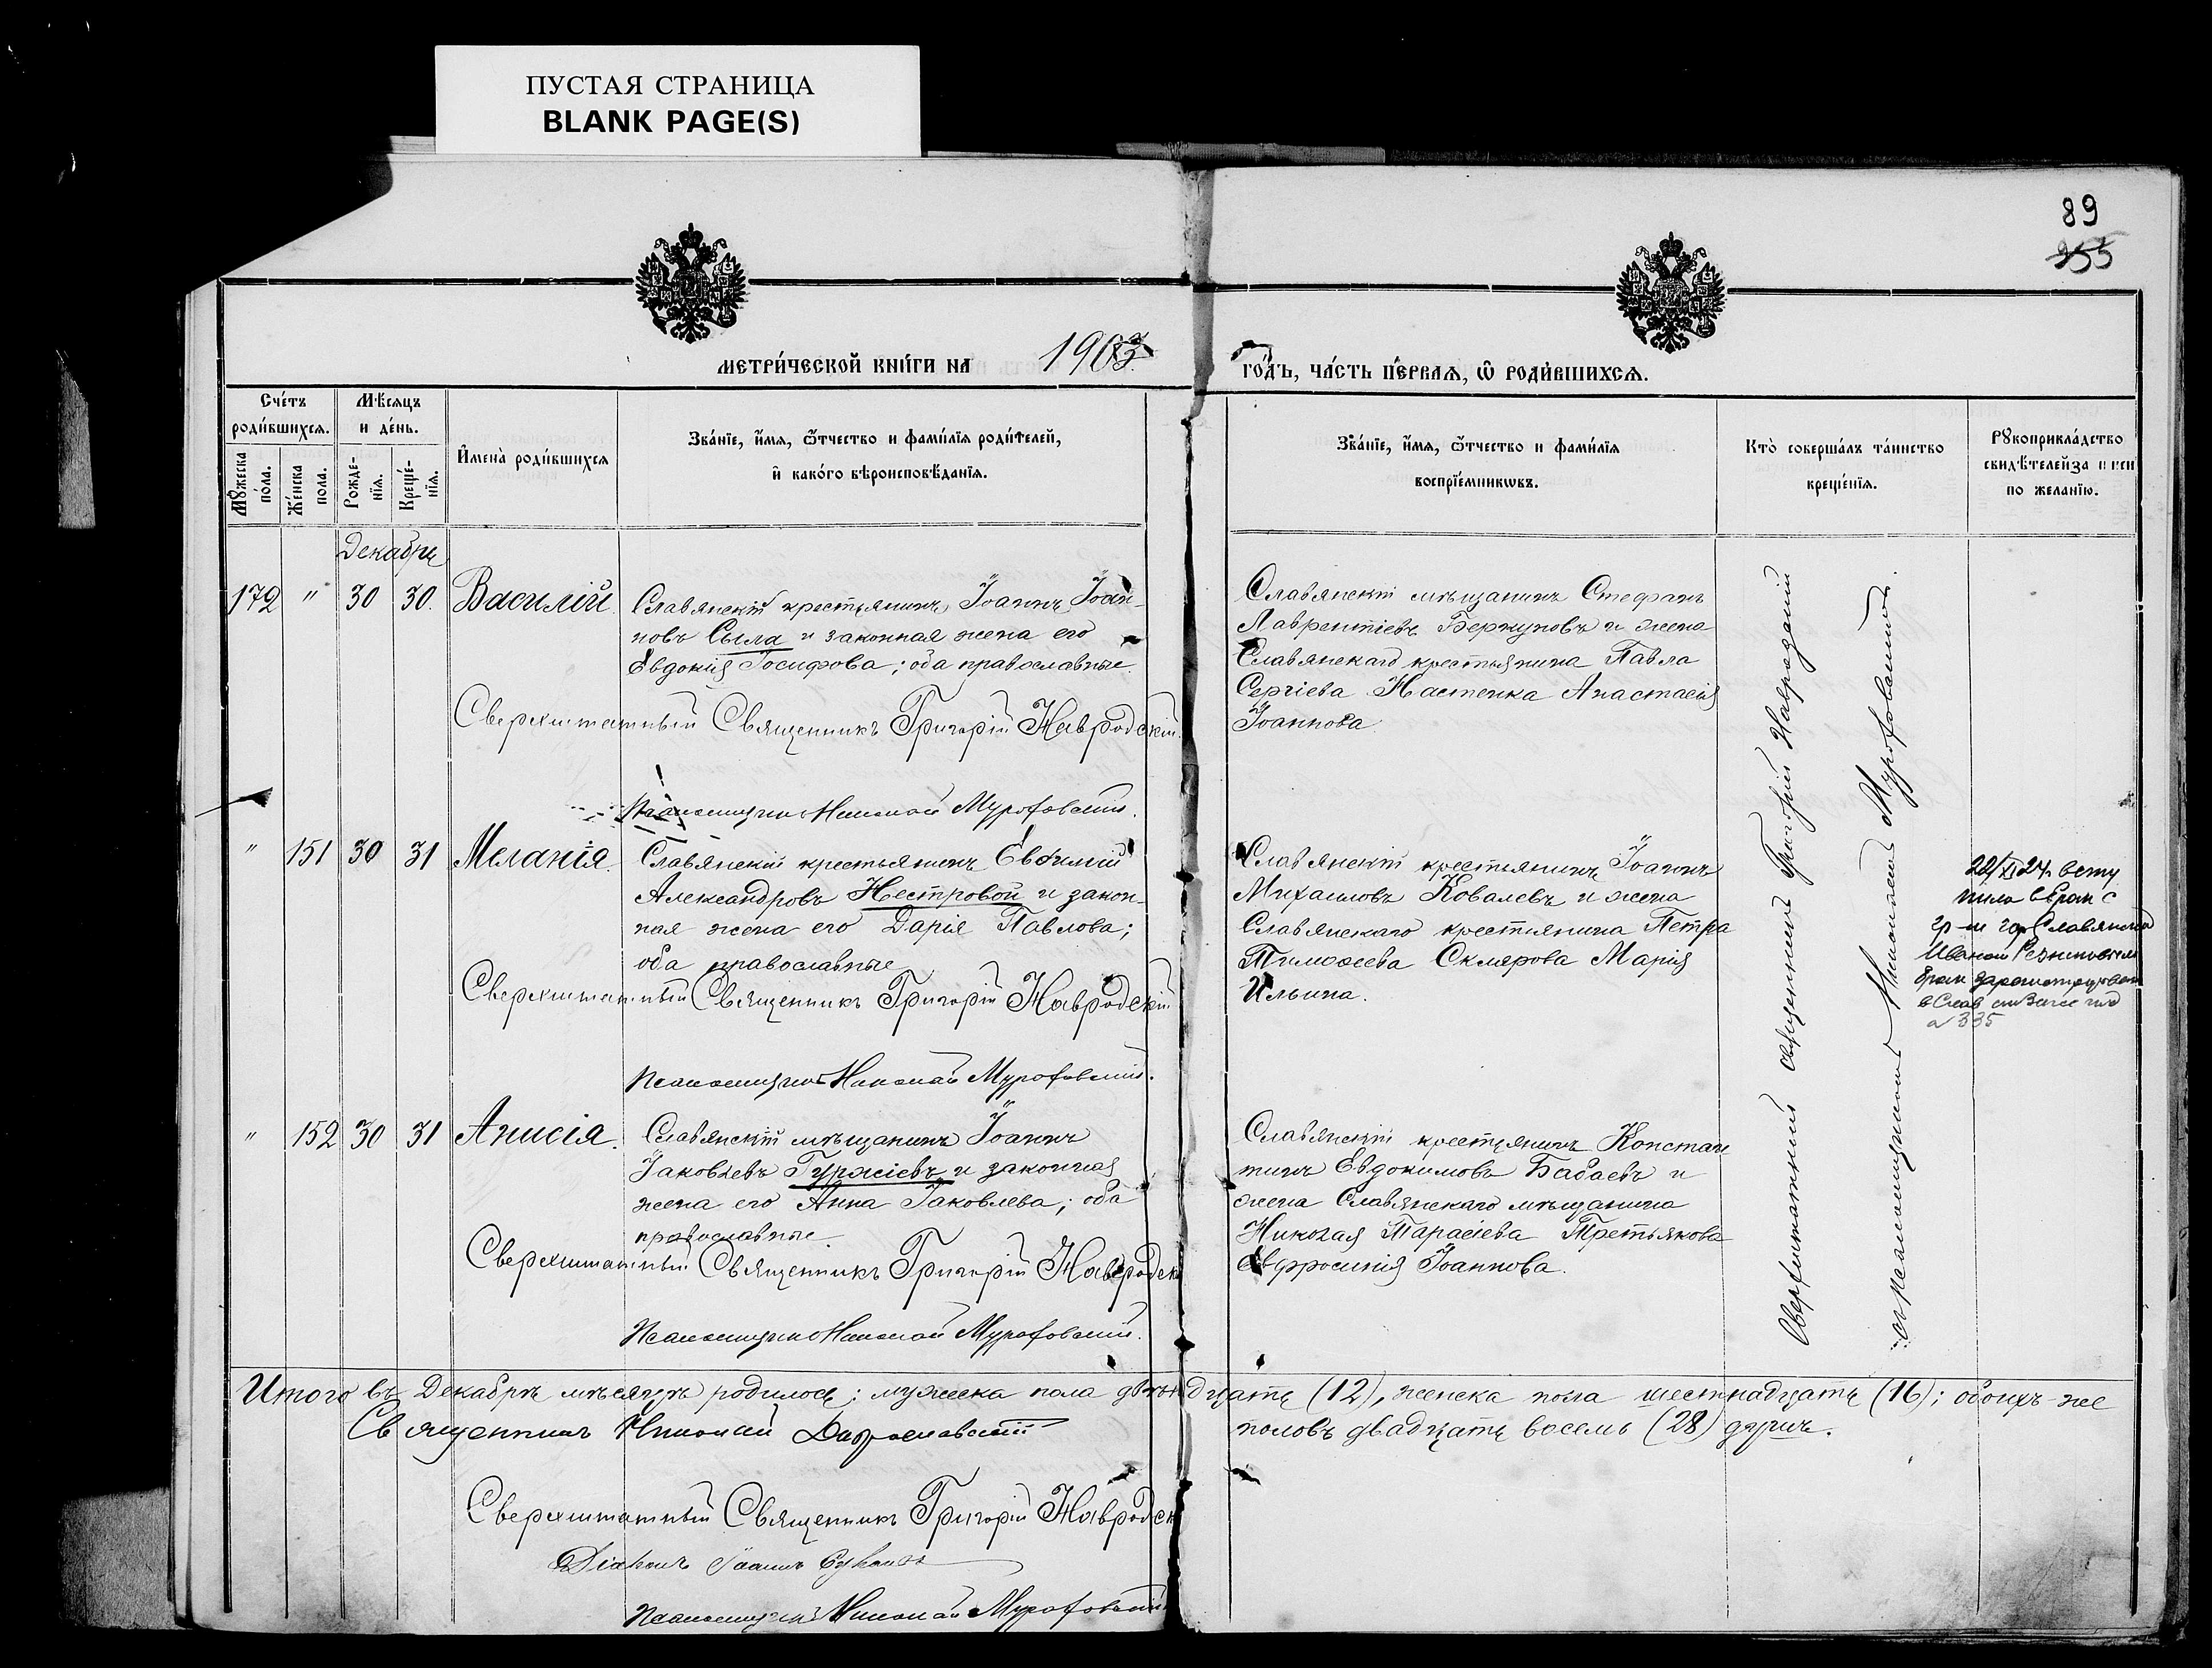 ПУСТАЯ СТРАНИЦА
BLANK PAGE(S)
89
355
МЕТРИ́ЧЕСКОЙ КНИ́ГИ НА 1903 ГО́ДЪ, ЧА́СТЬ ПЕ́РВАѦ, Ѽ РОДИ́ВШИХСѦ.
Сче́тъ роди́вшихсѧ.
Мѣ́сѧцъ и де́нь.
Мꙋжеска по́ла.
Же́нска пола.
Рожде-нїѧ.
Креще́-нїѧ.
И҆мена̀ роди́вшихсѧ
Зва́нїе, и҆́мѧ, ѻ҆́тчество и фами́лїѧ роди́телей,
и҆ како́гѡ вѣроисповѣ́данїѧ.
Зва́нїе, и҆́мѧ, ѻ҆́тчество и фами́лїѧ
воспрїе́мникѡвъ.
Кто̀ соверша́лъ та́инство
креще́нїѧ.
Рꙋкоприкла́дство
свидѣ́телей за
по жела́нїю.
Декабрь
172 " 30 30. Василій
Славянскій крестьянинъ Іоаннъ Іоан-
новъ Сыла и законная жена его
Евдокія Іосифова; оба православные.
Сверхштатный Священникъ Григорій Навродскій.
Псаломщикъ Николай Мурофовскій.
Славянскій мѣщанинъ Стефанъ
Лаврентіевъ Беркуновъ и жена
Славянскаго крестьянина Павла
Сергіева Настенка Анастасія
Іоаннова
" 151 30 31 Меланія.
Славянскій крестьянинъ Евѳимій
Александровъ Нестровой и закон-
ная жена его Дарія Павлова;
оба православные
Сверхштатный Священникъ Григорій Навродскій
Псаломщикъ Николай Мурофовскій.
Славянскій крестьянинъ Іоаннъ
Михаиловъ Ковалевъ и жена
Славянскаго крестьянина Петра
Тимоѳеева Склярова Марія
Ильина.
22/XI 24г. всту
пила в брак с
гр-м гор Славянска
Иваном Резниковым
брак зарегистрирован
в Слав
335
" 152 30 31 Анисія.
Славянскій мѣщанинъ Іоаннъ
Іаковлевъ Гуржіевъ и законная
жена его Анна Іаковлева; оба
православные.
Сверхштатный Священникъ Григорій Навродск
Псаломщикъ Николай Мурофовскій.
Славянскій крестьянинъ Констан
тинъ Евдокимовъ Бабаевъ и
жена Славянскаго мѣщанина
Николая Тарасіева Третьякова
Евфросинія Іоаннова.
Сверхштатный священникъ Григорій Навродскій
съ псаломщикомъ Николаемъ Мурофовскимъ.
Итого въ Декабрѣ мѣсяцѣ родилось: мужеска пола двѣнадцать (12), женска пола шестнадцать (16); обоихъ же
половъ двадцать восемь (28) душъ.
Священникъ Николай
Сверхштатный Священникъ Григорій Навродск
Діаконъ Іоаннъ
Псаломщикъ Николай Мурофовскій